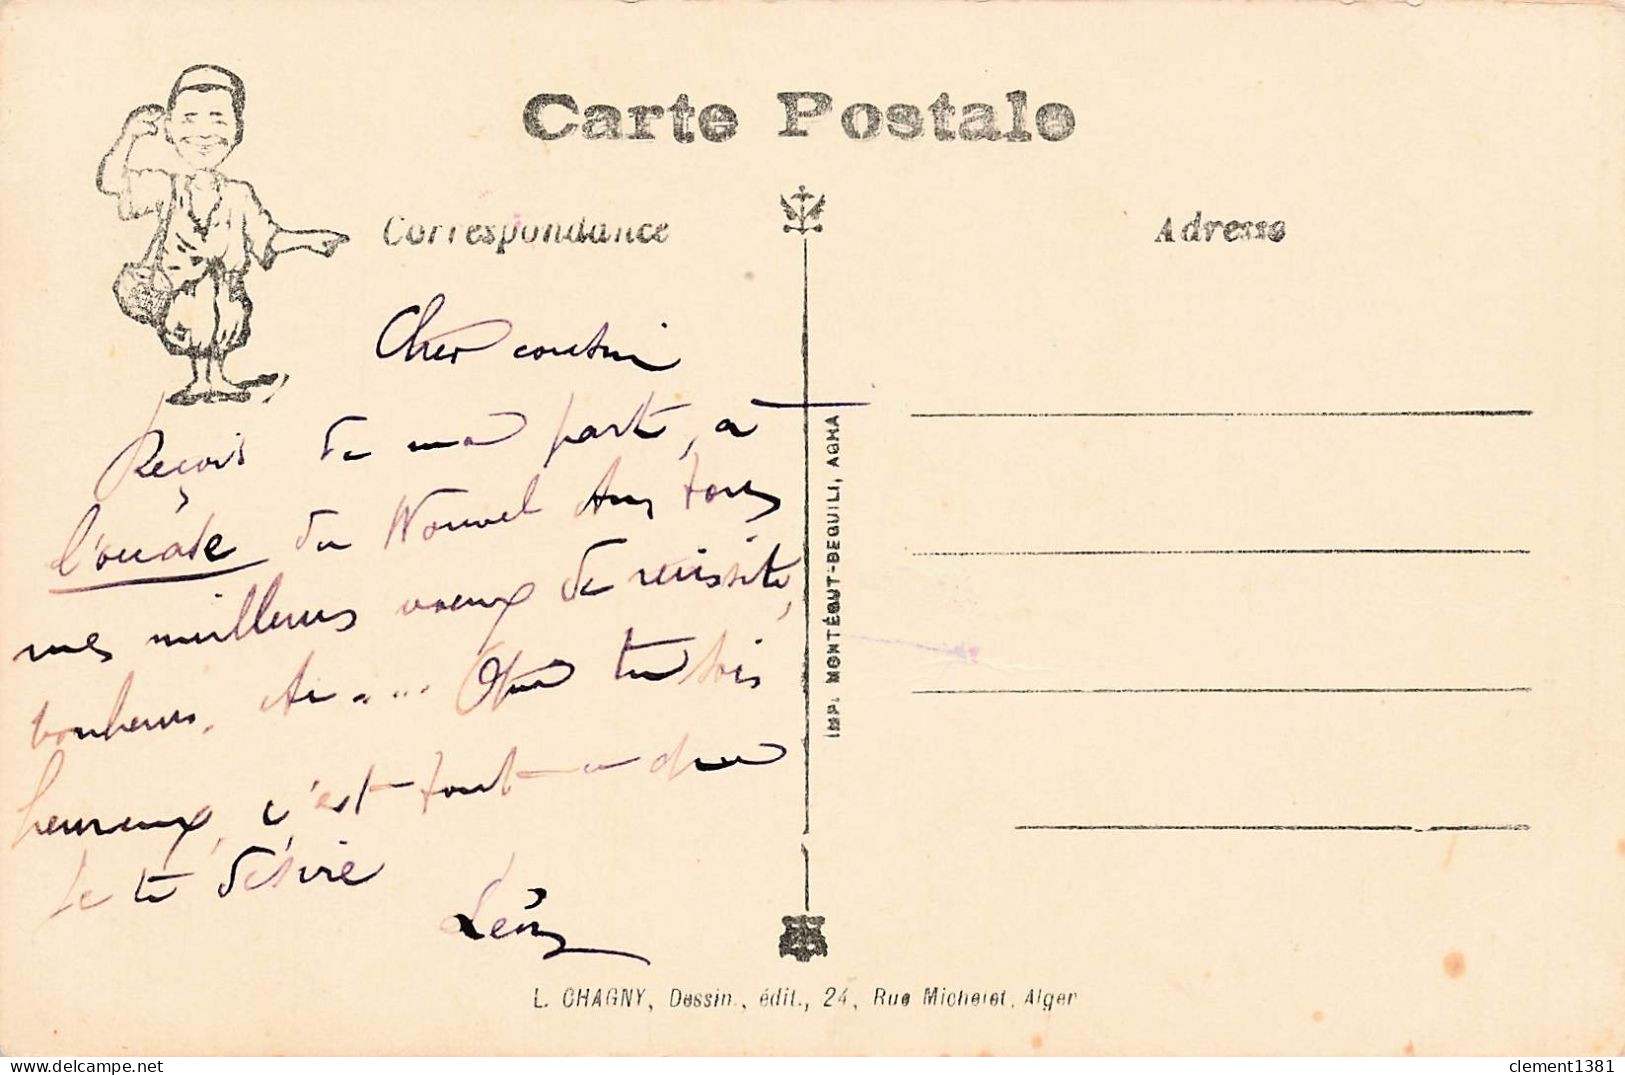 Carte Postale
Correspondance
Adresse
Cher cousin
Reçois de ma part, à
l'occase du Nouvel An, tous
mes meilleurs vœux de réussite,
bonheur, etc .... Que tu sois
heureux, c'est tout ce que
je te désire
Léon
IMP. MONTÉGUT-DEGUILI, AGHA
L. CHAGNY, Dessin., édit., 24, Rue Michelet, Alger
clement1381